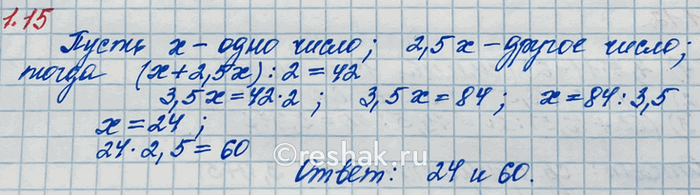 1.15
Пусть х - одно число; 2,5х - другое число;
тогда (х+2,5х):2=42
3,5х=42·2; 3,5х=84; х=84:3,5
х=24;
24·2,5=60
©reshak.ru
Ответ: 24 и 60.